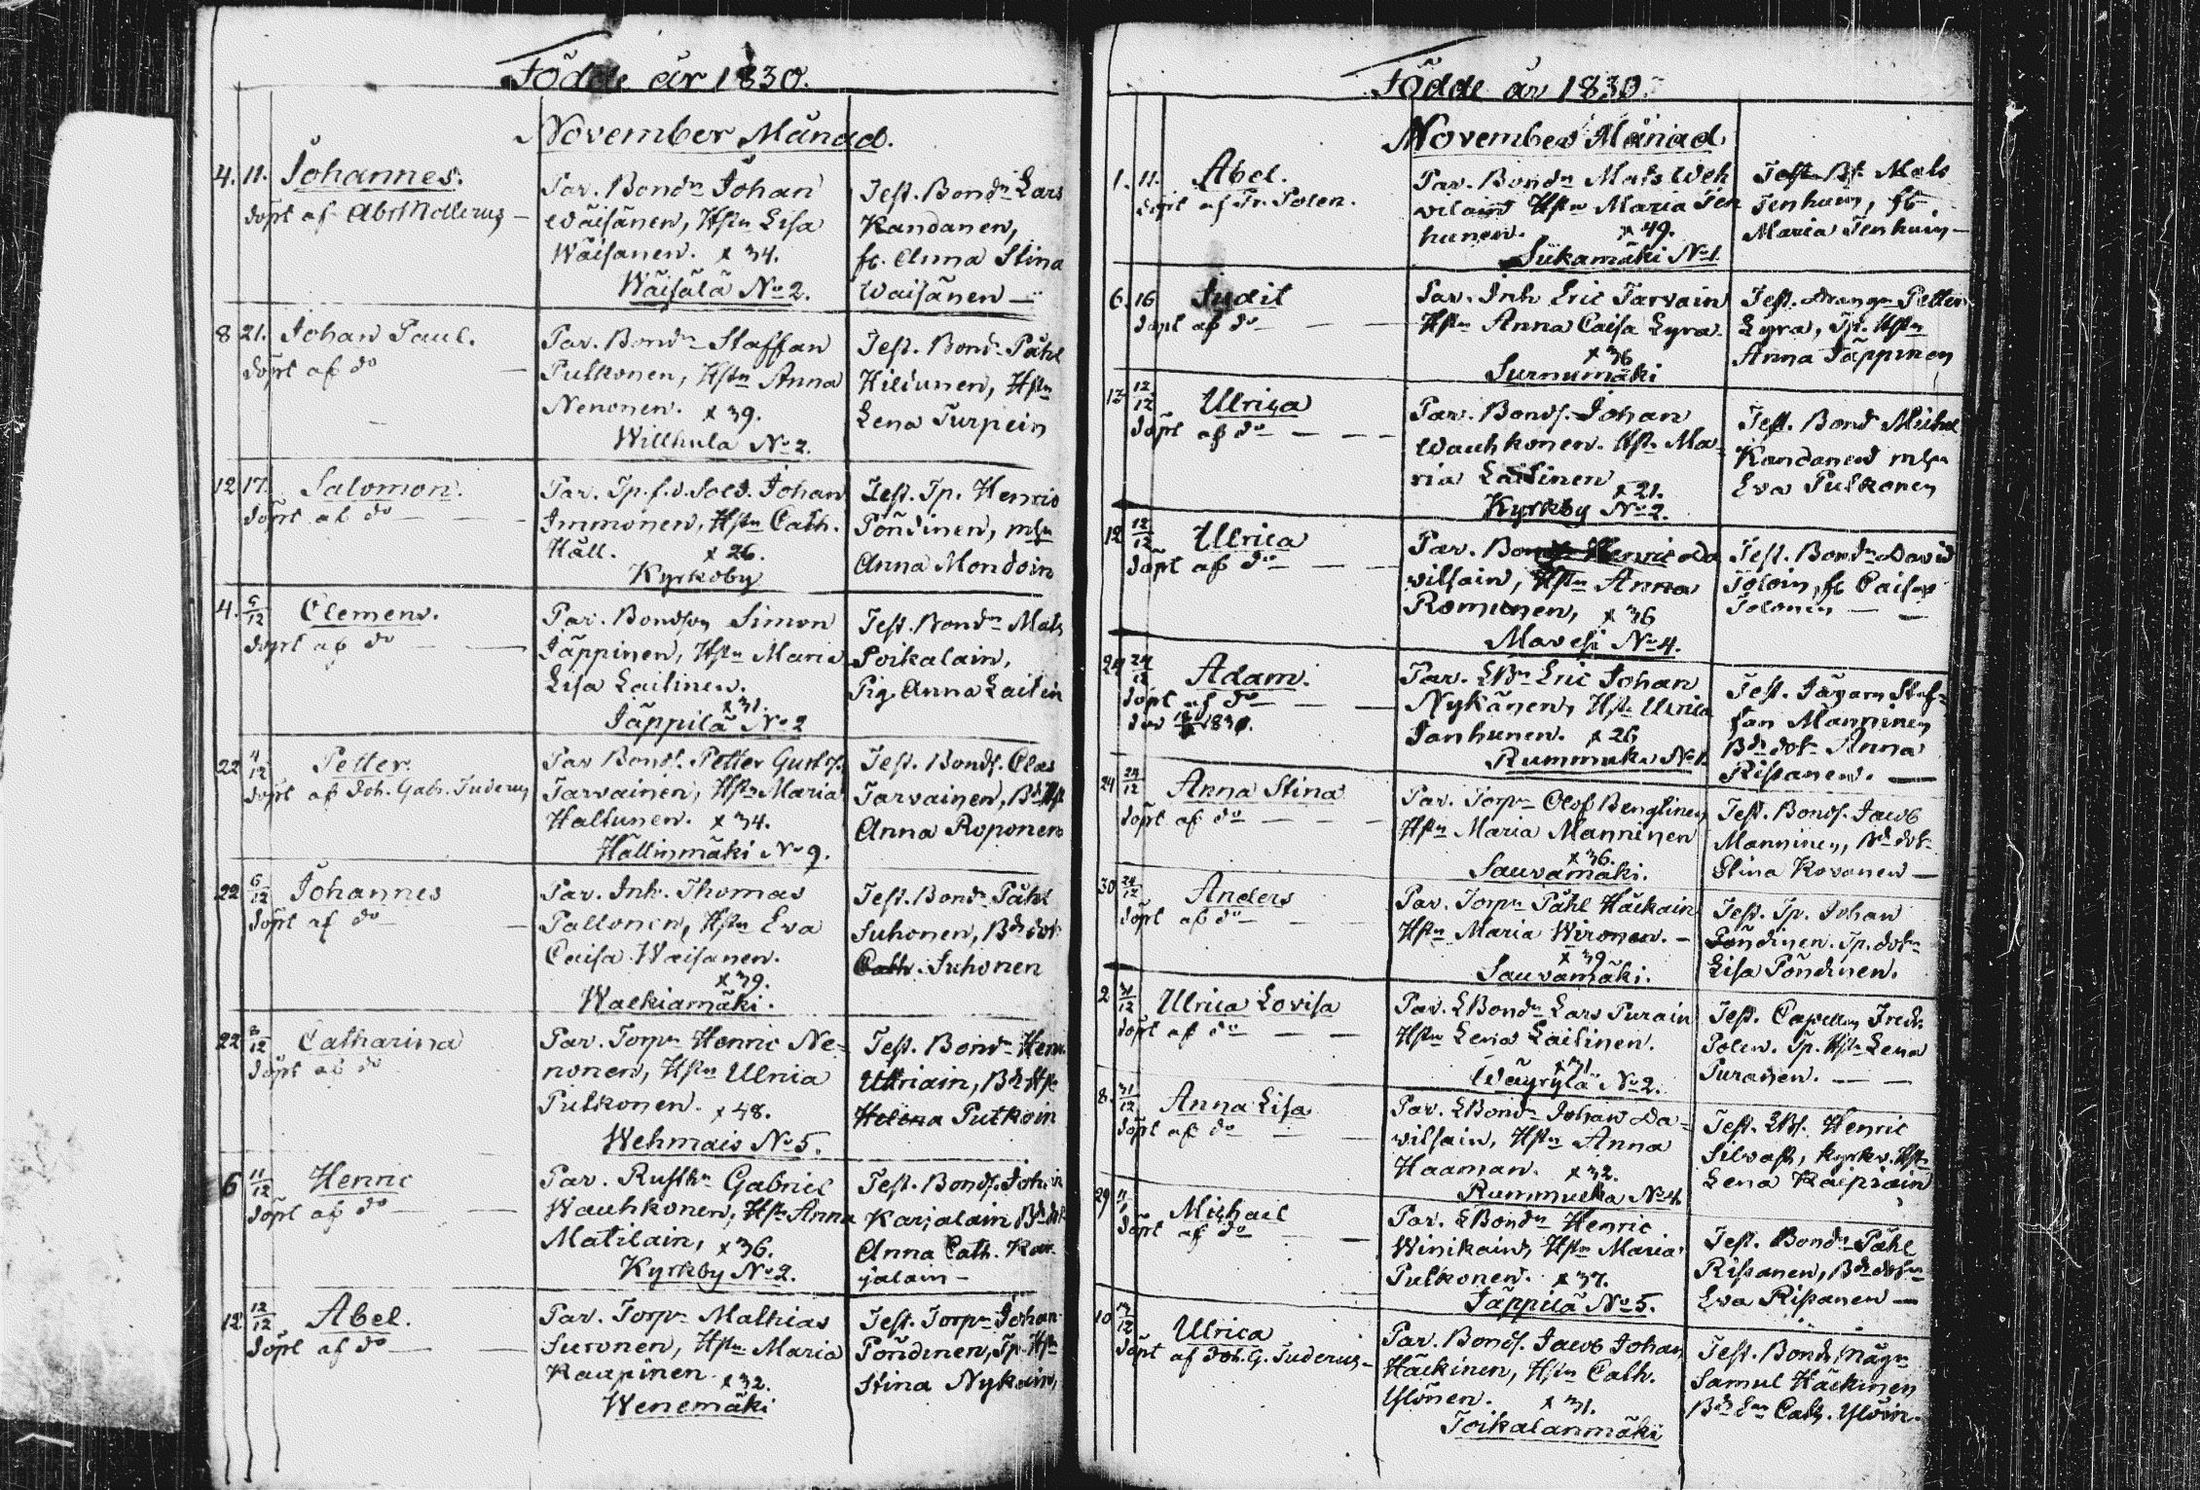 Födde år 1830.
November Månad.
4. 11. Johannes.
döpt af Abr Mollerus —
Par. Bondn Johan
Wäisänen, Hstn Lisa
Wäisänen. x 34.
Wäisälä No 2.
Test. Bondn Lars
Kandanen,
fl. Anna Stina
Waisänen —
8 21. Johan Paul.
döpt af do —
Par. Bondn Staffan
Pulkonen, Hstn Anna
Nenonen. x 39.
Willhula No 2.
Test. Bondn Påhl
Hildunen, Hstn
Lena Turpein
12 17. Salomon.
döpt af do — —
Par. Tp. f.d. Sold. Johan
Immonen, Hstn Cath.
Häll. x 26.
Kyrkoby
Test. Tp. Henric
Pöndinen, mln
Anna Mondoin
4. 5/12 Clemens.
döpt af do — —
Par. Bondson Simon
Jäppinen, Hstn Maria
Lisa Laitinen.
x 31.
Jäppilä No 2
Test. Bondn Mats
Poikalain,
Pig. Anna Laitin
22 4/12 Petter.
döpt af Joh. Gab. Tuderus
Par Bonds. Petter Gustaf
Tarvainen, Hstn Maria
Haltunen. x 34.
Hällinmäki No 9.
Test. Bonds. Clas
Tarvainen, Bd Hst
Anna Roponen
22 6/12 Johannes
döpt af do — —
Par. Inh. Thomas
Pallonen, Hstn Eva
Caisa Waisanen.
x 39.
Walkiamäki.
Test. Bondn Påhl
Suhonen, Bd dotr
Cath. Suhonen
22 8/12 Catharina
döpt af do
Par. Torpn Henric Ne=
nonen, Hstn Ulrica
Pulkonen. x 48.
Wehmais No 5.
Test. Bondn Henr.
Ukriain, Bd Hst
Helena Putkoin
6 11/12 Henric
döpt af do — —
Par. Rusthn Gabriel
Wauhkonen, Hstn Anna
Matilain, x 36.
Kyrkby No 2.
Test. Bonds. Johan
Karjalain Bd dot
Anna Cath. Kar-
jalain —
12 12/12 Abel.
döpt af do — —
Par. Torpn Mathias
Suronen, Hstn Maria
Kaupinen x 32.
Wenemäki
Test. Torpn Johan
Pöndinen, Tp. Hstn
Stina Nykäin,
Födde år 1830.
November Månad.
1. 11. Abel.
döpt af Fr. Polen.
Par. Bondn Mats Weh
vilain Hstn Maria Ten
hunen. x 49.
Sükamäki No 1
Test. Bs. Mats
Tenhuin, fl.
Maria Tenhuin —
6. 16 Judit
döpt af do — — —
Par. Inh Eric Tarvain
Hstn Anna Caisa Lyra.
x 36
Surnumäki
Test. drangn Petter
Lyra, Tp. Hstn
Anna Jäppinen
13 12/12 Ulrica
döpt af do — — —
Par. Bonds. Johan
Wauhkonen. Hstn Ma-
ria Laitinen
x 21.
Kyrkby No 2.
Test. Bond Michel
Kandanen mln
Eva Pulkonen
12 12/12 Ulrica
döpt af do — —
Par. Bondn Henric Da
vilsain, Hstn Anna
Romunen, x 36
Mavesi No 4.
Test. Bondn David
Toloin, fl Caisa
Tolonen — —
24 24/12 Adam.
döpt af do — —
Par. LBn Eric Johan
Nykänen, Hstn Ulrica
Janhunen. x 26
Rummuka No 1.
Test. Jägarn Staf=
fan Manninen
Bd dotr Anna
Rissanen. —
24 24/12 Anna Stina
döpt af do — — —
Par. Torpn Olof Bengtinen
Hstn Maria Manninen
x 36.
Sauvamäki.
Test. Bonds. Jacob
Manninen, Bd dotr
Stina Kovanen —
30 26/12 Anders
döpt af do — —
Par. Torpn Påhl Häckain
Hstn Maria Wironen. —
x 39
Sauvamäki.
Test. Tp. Johan
Pöndinen. Tp. dotr
Lisa Pöndinen.
2 31/12 Ulrica Lovisa
döpt af do — —
Par. LBondn Lars Purain
Hstn Lena Laitinen.
x 31
Wäyrylä No 2.
Test. Capellan Fredr.
Polen. Tp. Hstn Lena
Puranen. — —
8. 31/12 Anna Lisa
döpt af do — —
Par. LBondn Johan Da=
vilsain, Hstn Anna
Haaman. x 32.
Rummucka No 4.
Test. LBs. Henric
Silvast, kyrkv. Hstn
Lena Kaipiain
29 Michael
döpt af do — —
Par. LBondn Henric
Winikain, Hstn Maria
Pulkonen. x 37.
Jäppilä No 5.
Test. Bondn Påhl
Rissanen, Bd dotn
Eva Rissanen —
10 Ulrica
döpt af Joh. G. Tuderus —
Par. Bonds. Jacob Johan
Häckinen, Hstn Cath.
Ylönen. x 31.
Toikalanmäki
Test. Bonds Mågn
Samul Häckinen
Cath. Ylöin.